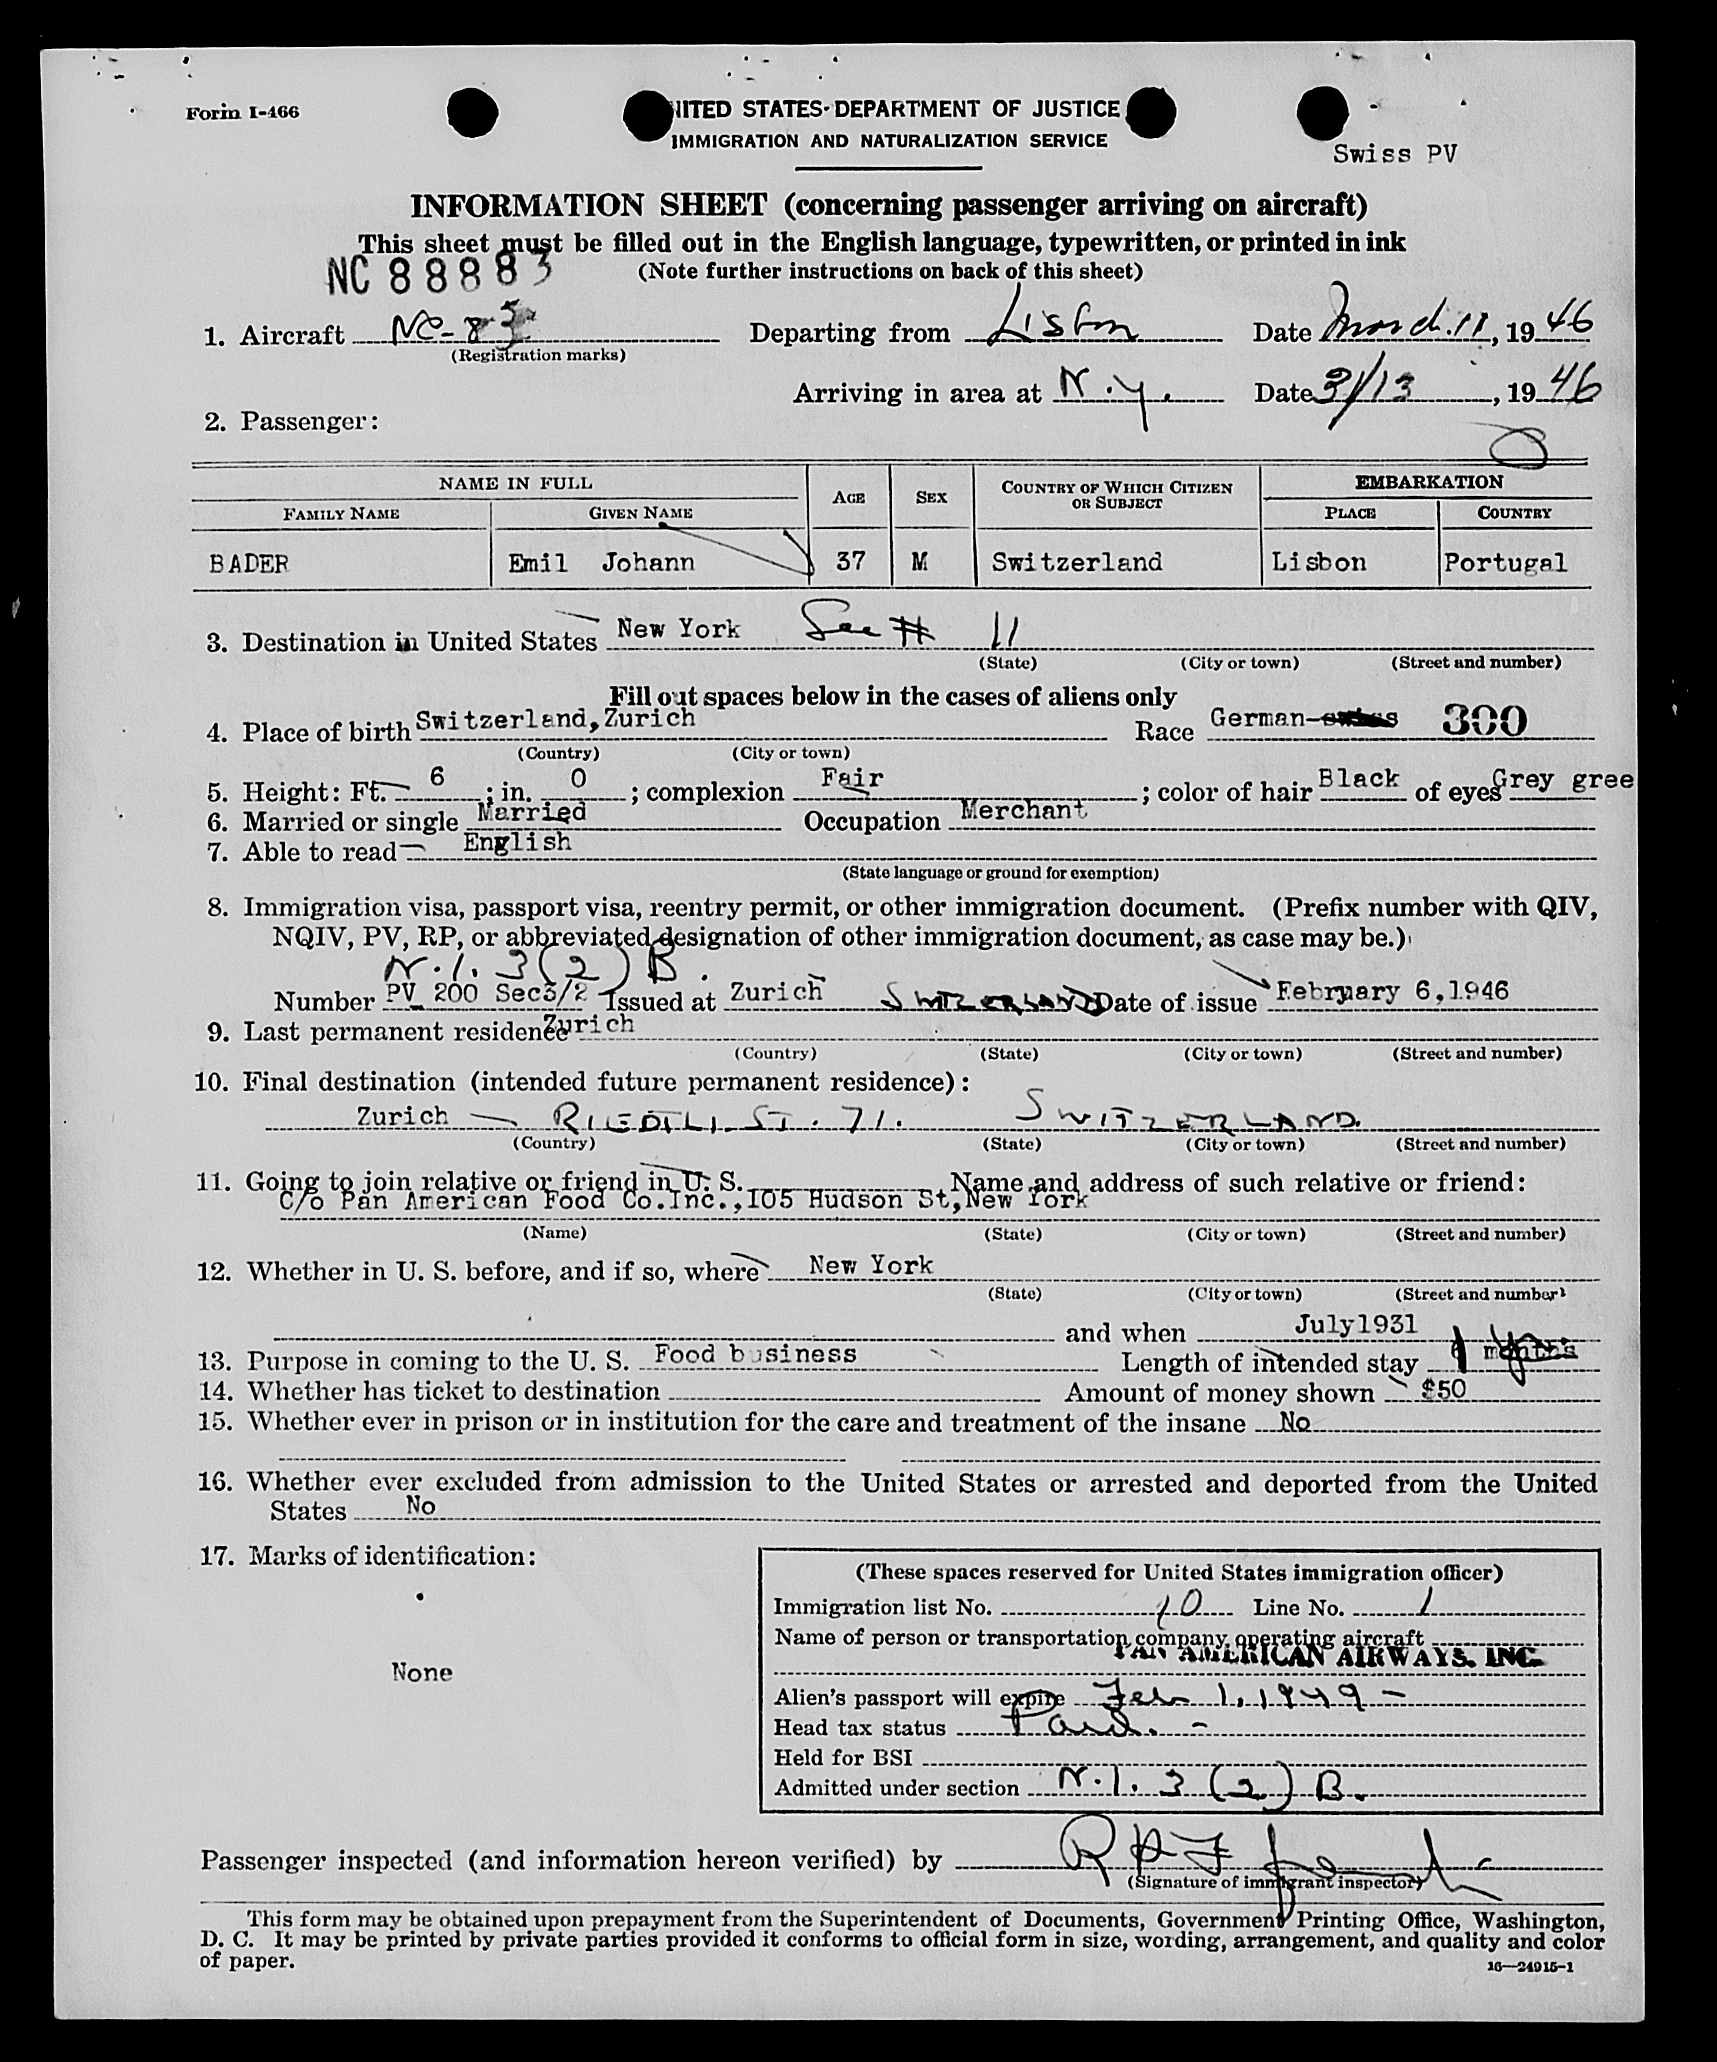 Form I-466
UNITED STATES DEPARTMENT OF JUSTICE
IMMIGRATION AND NATURALIZATION SERVICE
Swiss PV
INFORMATION SHEET (concerning passenger arriving on aircraft)
This sheet must be filled out in the English language, typewritten, or printed in ink
NC 88883
(Note further instructions on back of this sheet)
1. Aircraft NC-8 Departing from Lisbon Date March 11, 1946
(Registration marks)
Arriving in area at N.Y. Date 3/13, 1946
2. Passenger:
NAME IN FULL AGE SEX COUNTRY OF WHICH CITIZEN OR SUBJECT EMBARKATION
FAMILY NAME GIVEN NAME PLACE COUNTRY
BADER Emil Johann 37 M Switzerland Lisbon Portugal
3. Destination in United States New York See # 11
(State) (City or town) (Street and number)
Fill out spaces below in the cases of aliens only
4. Place of birth Switzerland, Zurich Race German- 300
(Country) (City or town)
5. Height: Ft. 6; in. 0; complexion Fair; color of hair Black of eyes Grey gree
6. Married or single Married Occupation Merchant
7. Able to read English
(State language or ground for exemption)
8. Immigration visa, passport visa, reentry permit, or other immigration document. (Prefix number with QIV,
NQIV, PV, RP, or abbreviated designation of other immigration document, as case may be.)
N.I. 3(2) B.
Number PV 200 Sec3/2 Issued at Zurich SWITZERLAND Date of issue February 6,1946
9. Last permanent residence Zurich
(Country) (State) (City or town) (Street and number)
10. Final destination (intended future permanent residence):
Zurich RIEDTLI ST. 71. SWITZERLAND.
(Country) (State) (City or town) (Street and number)
11. Going to join relative or friend in U. S. Name and address of such relative or friend:
C/o Pan American Food Co.Inc.,105 Hudson St,New York
(Name) (State) (City or town) (Street and number)
12. Whether in U. S. before, and if so, where New York
(State) (City or town) (Street and number)
and when July1931
13. Purpose in coming to the U. S. Food business Length of intended stay months
14. Whether has ticket to destination Amount of money shown $50
15. Whether ever in prison or in institution for the care and treatment of the insane No
16. Whether ever excluded from admission to the United States or arrested and deported from the United
States No
17. Marks of identification:
None
(These spaces reserved for United States immigration officer)
Immigration list No. 10 Line No. 1
Name of person or transportation company operating aircraft
PAN AMERICAN AIRWAYS, INC.
Alien's passport will expire Feb 1, 1949 -
Head tax status Paid. -
Held for BSI
Admitted under section N.I. 3 (2) B.
Passenger inspected (and information hereon verified) by
(Signature of immigrant inspector)
This form may be obtained upon prepayment from the Superintendent of Documents, Government Printing Office, Washington,
D. C. It may be printed by private parties provided it conforms to official form in size, wording, arrangement, and quality and color
of paper.
16—24915-1